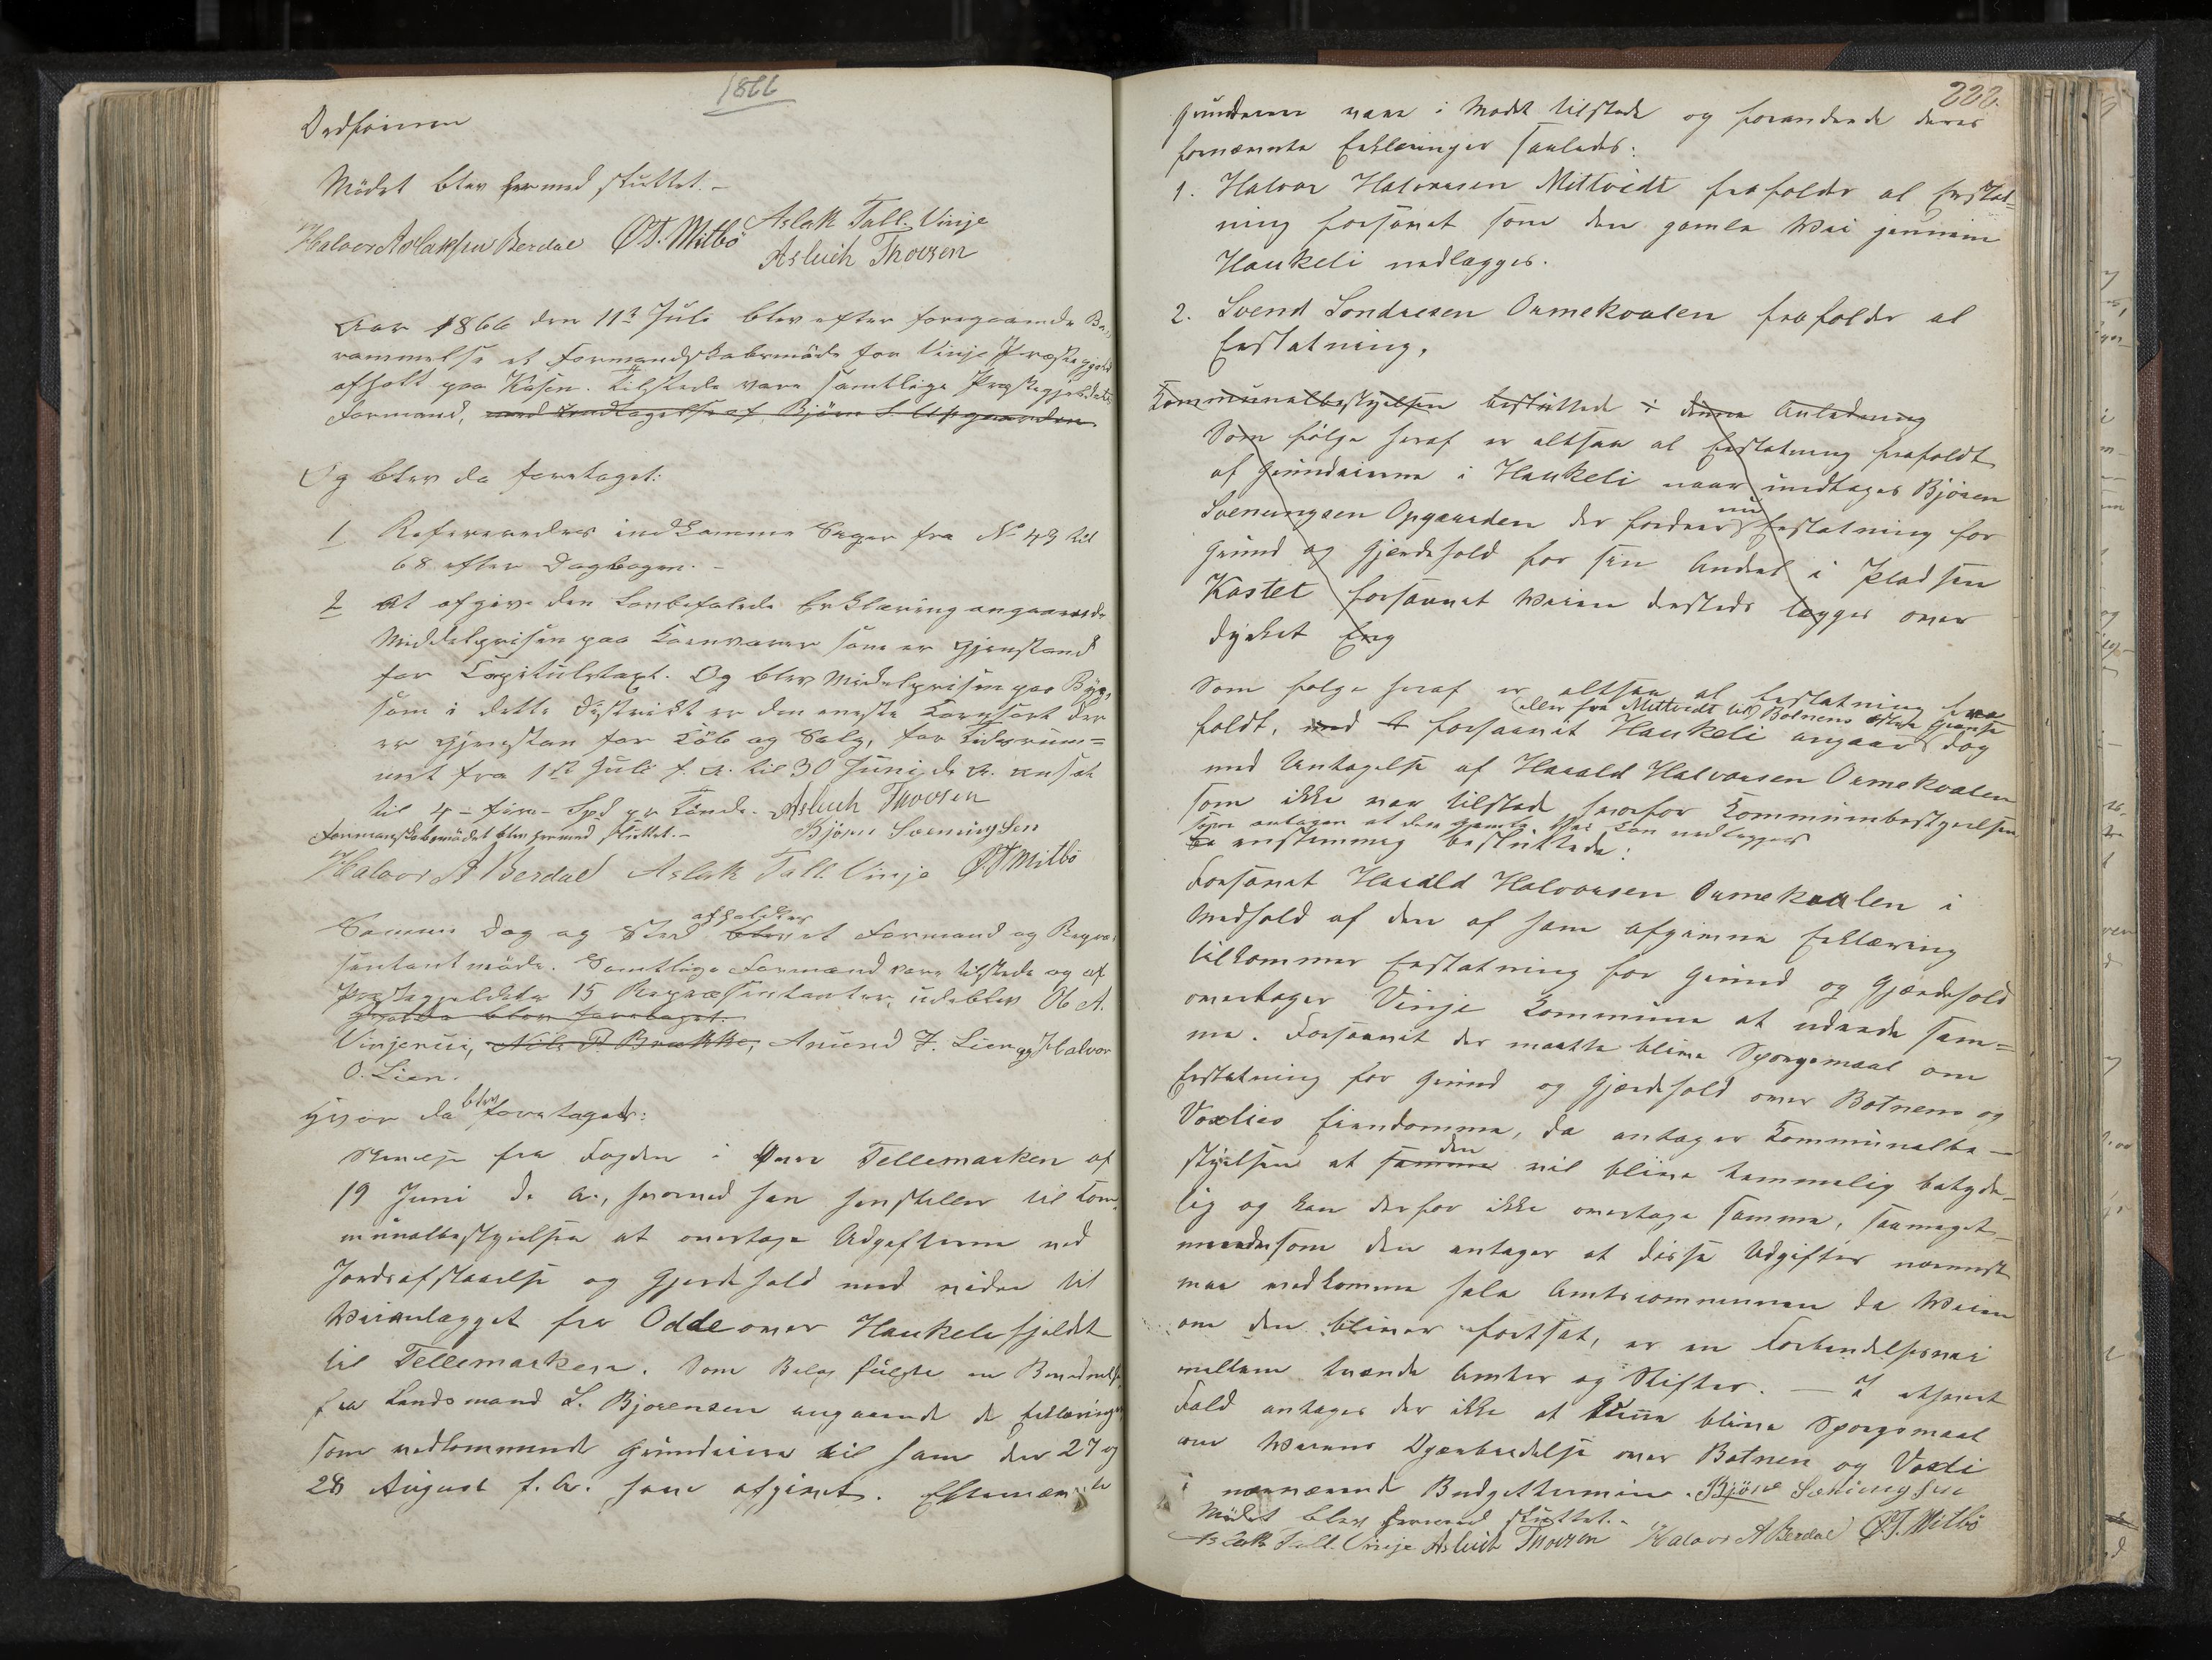 1866
Ordføreren
Mödet blev hermed sluttet. –
Halvor Aslaksen Berdal Ø. T. Mitbö Aslak Tall. Vinje
Asluich Thorsen
Aar 1866 den 11te Juli blev efter foregaaende Be-
rammelse et Formandskabsmöde for Vinje Præstegjeld
afholt paa Kosin. Tilstede vare samtlige Præstegjeldets
Formænd, med Undtagelse af Bjørn S. Upgaarden
Og blev da foretaget:
1 Refereredes indkomne Sager fra No 49 til
68 efter Dagbogen. –
2 At afgive den Lovbefalede Erklæring angaaende
Middelprisen paa Kornvarer som er Gjenstand
for Capitulstaxt. Og blev Middelprisen paa Byg,
som i dette Distrikt er den eneste Kornsort der
er Gjenstan for Köb og Salg, for Tidsrum=
met fra 1ste Juli f. A. til 30 Juni d. A. ansat
til 4 – fire – Spd pr Tönde. Asluch Thorsen
Formanskabsmödet blev hermed sluttet. – Bjørn Sveningsen
Halvor A Berdal Aslak Tall. Vinje Ø. T Mitbö
Samme Dag og Sted afholdtes blev et Formand og Repræ-
sentantmöde. Samtlige Formænd vare tilstede og af
Præstegjeldets 15 Repræsentanter, udeblev Ole A.
hvor da blev foretaget:
Vinjerui, Nils P. Brække, Anund F. Lien og Halvor
O. Lien.
Hvor da blev foretaget:
Skrivelse fra Fogden i Øvre Tellemarken af
19 Juni d. A., hvorved han henstiller til Kom-
munalbestyrelsen at overtage Udgifterne ved
Jordafstaaelse og Gjerdehold med videre til
Veianlægget fra Odde over Haukelifjeldet
til Tellemarken. Som Bilag fulgte en Beredning
fra Landsmand L. Bjorensen angaaende de Erklæringer
som vedkommende Grundeiere til ham den 27 og
28 August f. A. have afgivet. Efternævnte
222
Grundeiere vare i Mødet tilstede og forandrede deres
fornævnte Erklæringer saaledes:
1. Halvor Halvorsen Mittveidt frafalder al Erstat=
ning forsaavidt som den gamle Vei gjennem
Haukeli nedlægges.
2. Svend Sondresen Ormekvalen frafalder al
Erstatning.
Kommunalbestyrelsen besluttede i denne Anledning
Som følge heraf er altsaa al Erstatning frafaldt
af Grundeierne i Haukeli naar undtages Bjøren
Svenungsen Opgaarden der fordrer nu Erstatning for
Grund og Gjerdehold for sin Andel i Pladsen
Kostet forsaavidt Veien desteds lægges over
dyrket Eng
Som følge heraf er altsaa al Erstatning fra-
faldt, med t forsaavidt Haukeli eller fra Mittveidt til Botnens østre Grændse angaar dog
med Undtagelse af Harald Halvorsen Ormekvalen
som ikke var tilsted hvorfor Kommunbestyrelsen
som antager at den gamle Vei kan nedlægges
da enstemmig besluttede:
Forsavidt Harald Halvorsen Ormekvalen i
Medhold af den af ham afgivne Erklæring
tilkommer Erstatning for Grund og Gjærdehold
overtager Vinje Kommune at udrede sam=
me. Forsaavidt der maatte blive Spørgsmaal om
Erstatning for Grund og Gjærdehold over Botnens og
Voxlies Eiendomme, da antager Kommunalbe –
styrelsen at samme den vil blive temmelig betyde-
lig og kan derfor ikke overtage samme, saameget
mindre som den antager at disse Udgifter nærmest
maa vedkomme hele Amtscommunen da Veien
om den bliver fortsat, er en Forbindelsesvei
mellem tvende Amter og Stifter. – I ethvert
Fald antages der ikke at kunne blive Spørgsmaal
om Veiens Oparbeidelse over Botnen og Voxli
i nærværende Budgettermin. Bjørn Sveningsen
Mødet blev hermed sluttet. –
Aslak Tall. Vinje Asluich Thorsen Halvor A Berdal Ø. T. Mitbö